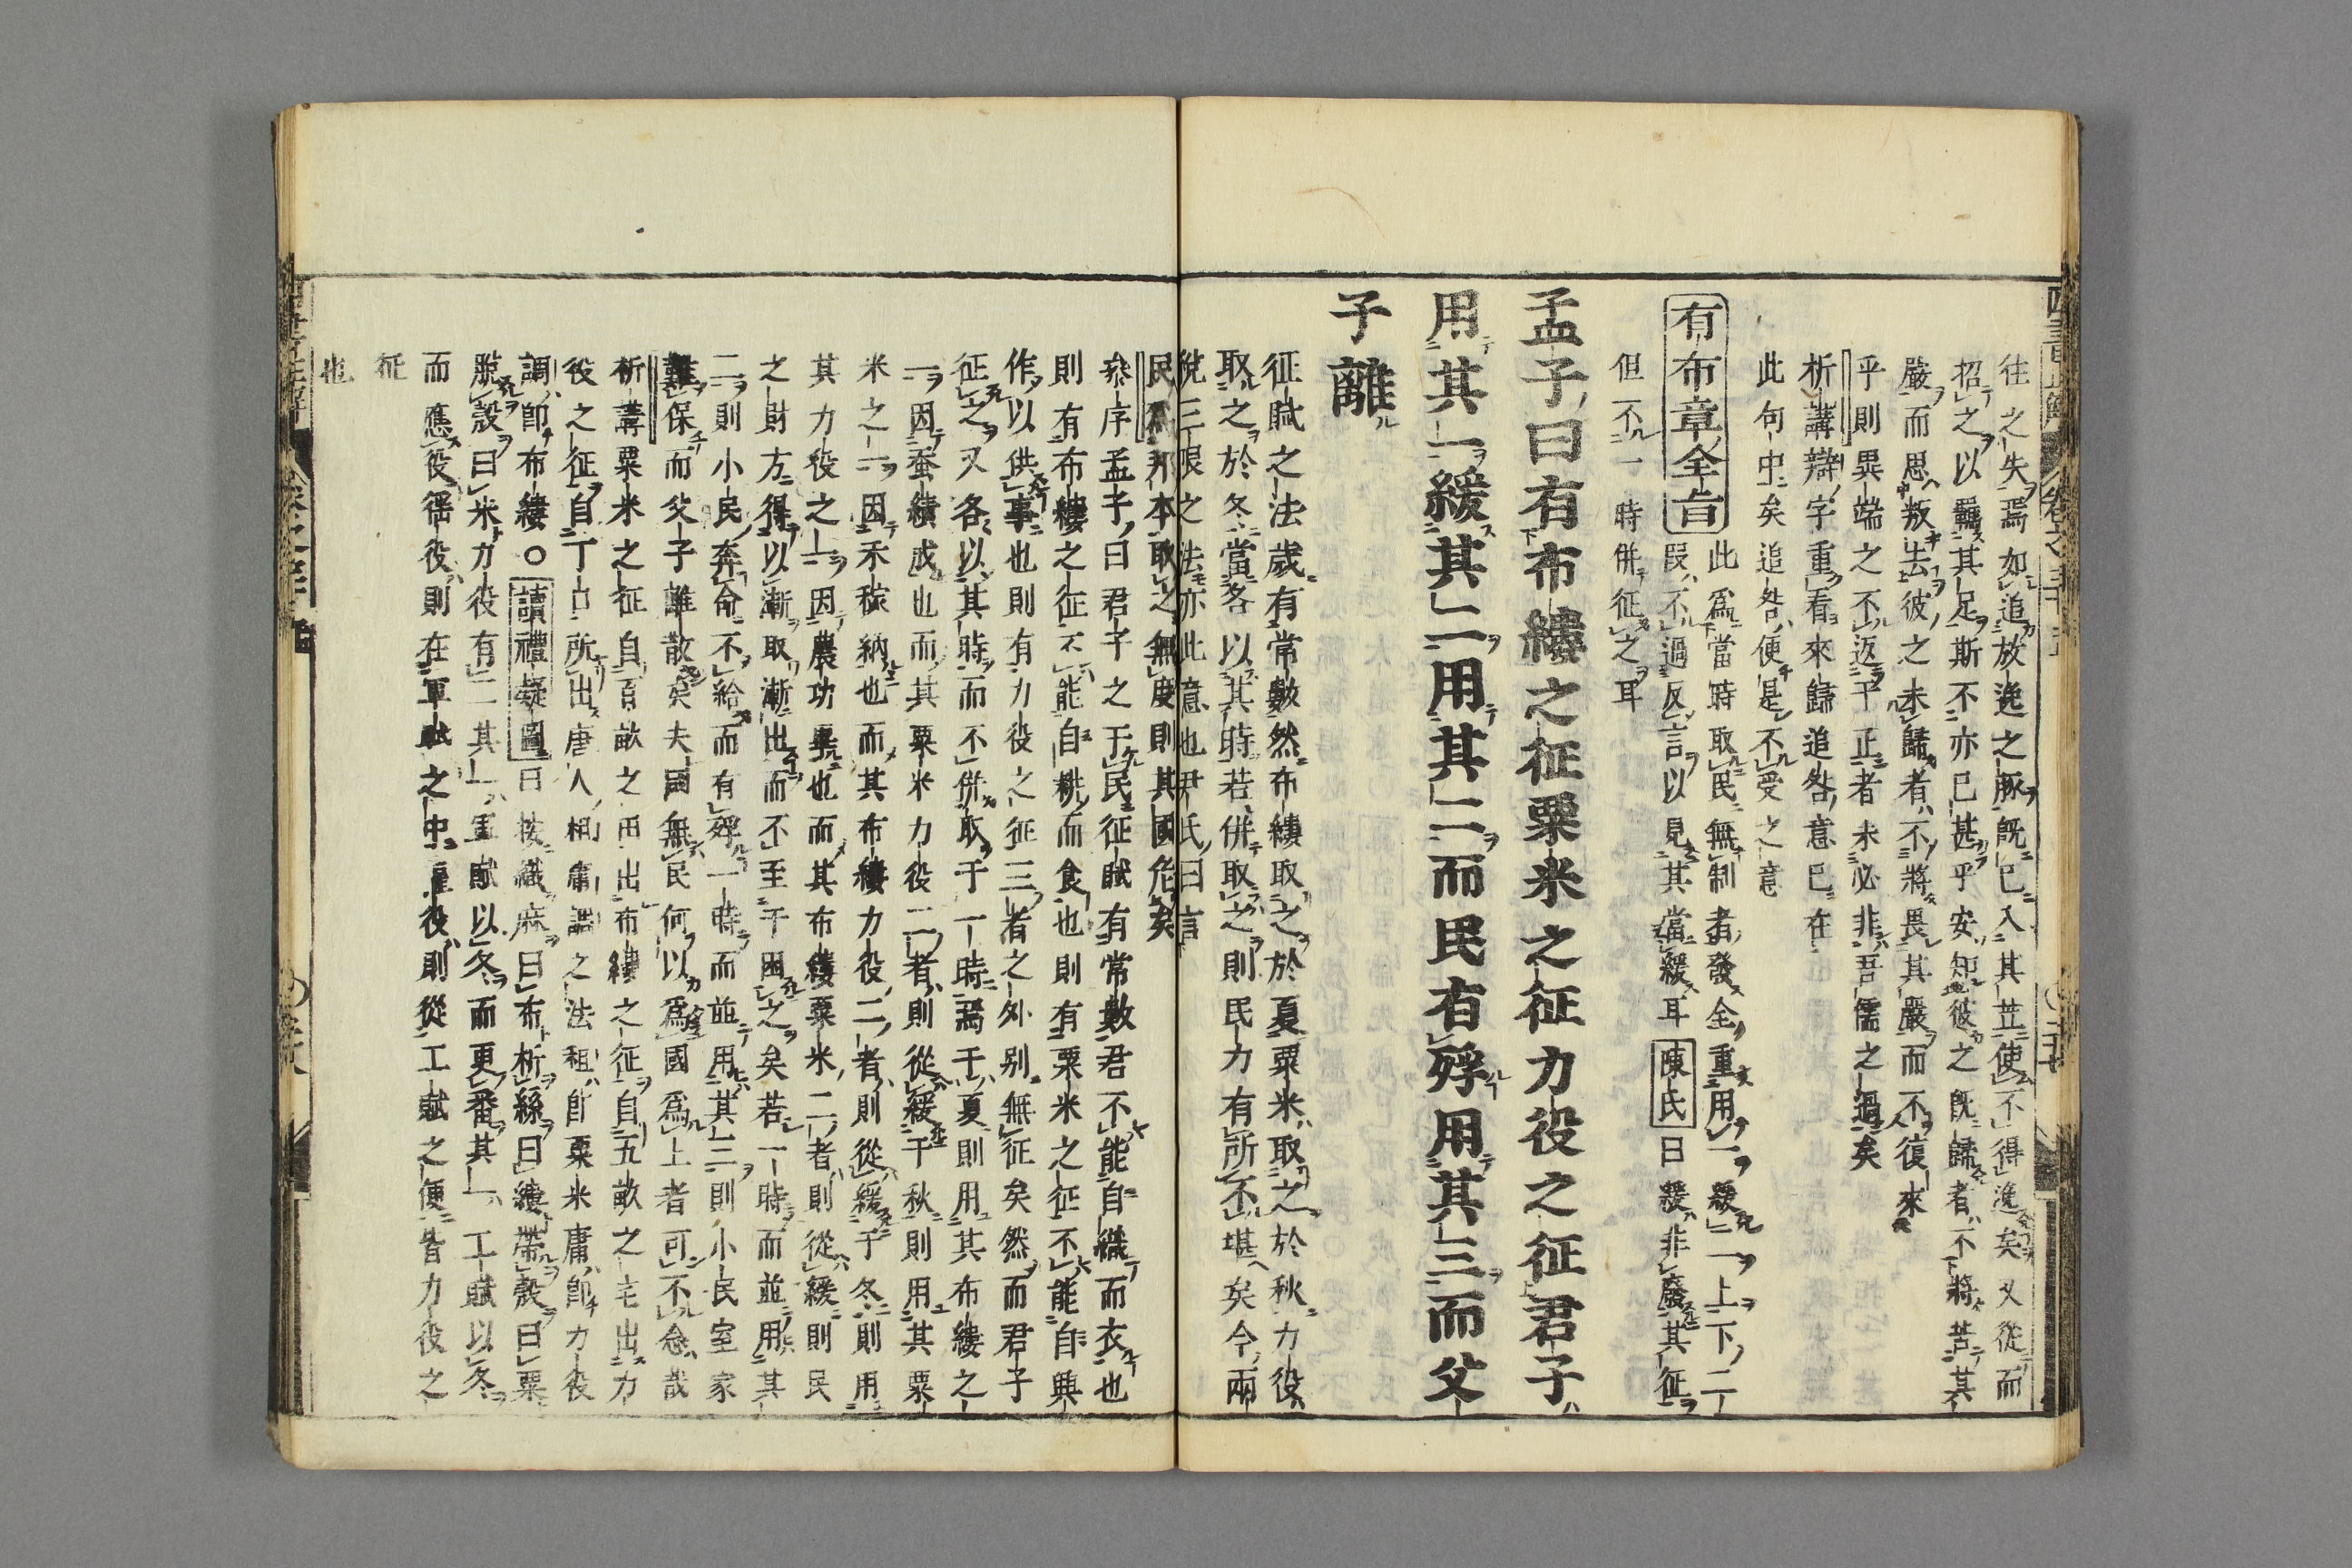 往之失焉如追放逸之豚既已入其苙使不得逸矣又從而
招之以羈其足斯不亦已甚乎安知彼之既歸者不將苦其
嚴而思叛去彼之未歸者不將畏其嚴而不復來
乎則異端之不返于正者未必非吾儒之過矣
析講辯字重看來歸追咎意已在
此句中矣追咎便是不受之意
有布章全旨
此爲當時取民無制者發全重用一緩二上下二
段不過反言以見其當緩耳陳氏曰緩非廢其征
但不一時併征之耳
孟子曰有布縷之征粟米之征力役之征君子
用其一緩其二用其二而民有殍用其三而父
子離
征賦之法歲有常數然布縷取之於夏粟米取之於秋力役
取之於冬當各以其時若併取之則民力有所不堪矣今兩
稅三限之法亦此意也尹氏曰言
民爲邦本取之無度則其國危矣
叅序孟子曰君子之于民征賦有常數君不能自織而衣也
則有布縷之征不能自耕而食也則有粟米之征不能自興
作以供事也則有力役之征三者之外別無征矣然而君子
征之又各以其時而不併取于一時焉于夏則用其布縷之
一因蚕績成也而其粟米力役二者則從緩于秋則用其粟
米之一因禾稼納也而其布縷力役二者則從緩于冬則用
其力役之一因農功畢也而其布縷粟米二者則從緩則民
之財方得以漸取漸出而不至于困之矣若一時而並用其
二則小民奔命不給而有殍一時而並用其三則小民室家
難保而父子離散矣夫國無民何以爲國爲上者可不念哉
析講粟米之征自百畝之田出布縷之征自五畝之宅出力
役之征自丁口所出唐人租庸調之法租卽粟米庸卽力役
調卽布縷○讀禮疑圖曰按織麻曰布析絲曰縷帶殼曰粟
脫殼曰米力役有二其一軍賦以冬而更番其一工賦以冬
而應役徭役則在軍賦之中雇役則從工賦之便皆力役之
征
也